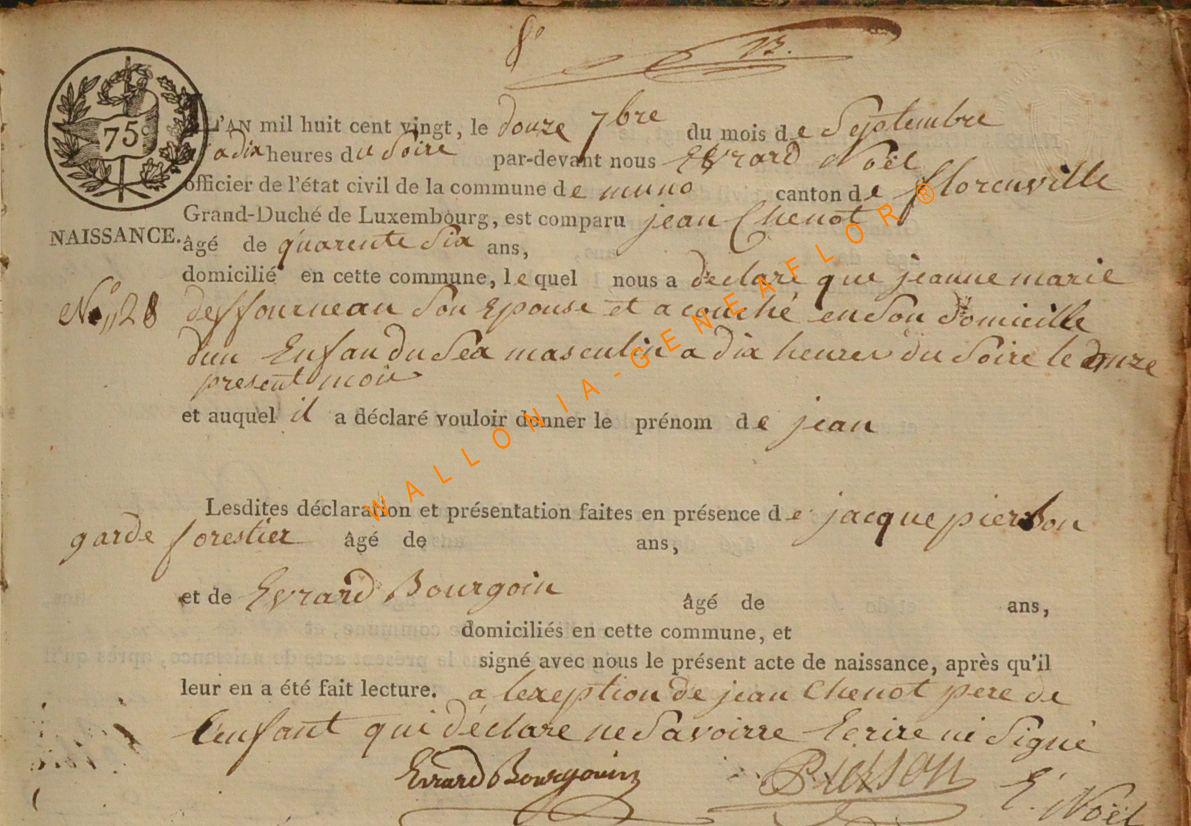 8º 13.
75c
L'AN mil huit cent vingt, le douze 7bre du mois de Septembre
a dix heures du Soire par-devant nous Evrard Noël
officier de l'état civil de la commune de muno canton de florenville
Grand-Duché de Luxembourg, est comparu jean Chenot
NAISSANCE.
âgé de quarente Six ans,
domicilié en cette commune, lequel nous a déclaré que jeanne marie
No,, 28 deffourneau Son Epouse et a couché en Son Domicille
dun Enfan du Sex masculin a dix heures du Soire le douze
present mois
et auquel il a déclaré vouloir donner le prénom de jean
Lesdites déclaration et présentation faites en présence de jacque pierson
garde forestier âgé de ans,
et de Evrard Bourgoin âgé de ans,
domiciliés en cette commune, et
signé avec nous le présent acte de naissance, après qu'il
leur en a été fait lecture. a lexeption de jean Chenot pere de
Lenfant qui déclare ne Savoirre Ecrire ni Signé
Evrard Bourgouin Pierson E. Noël
WALLONIA-GENEAFLOR®